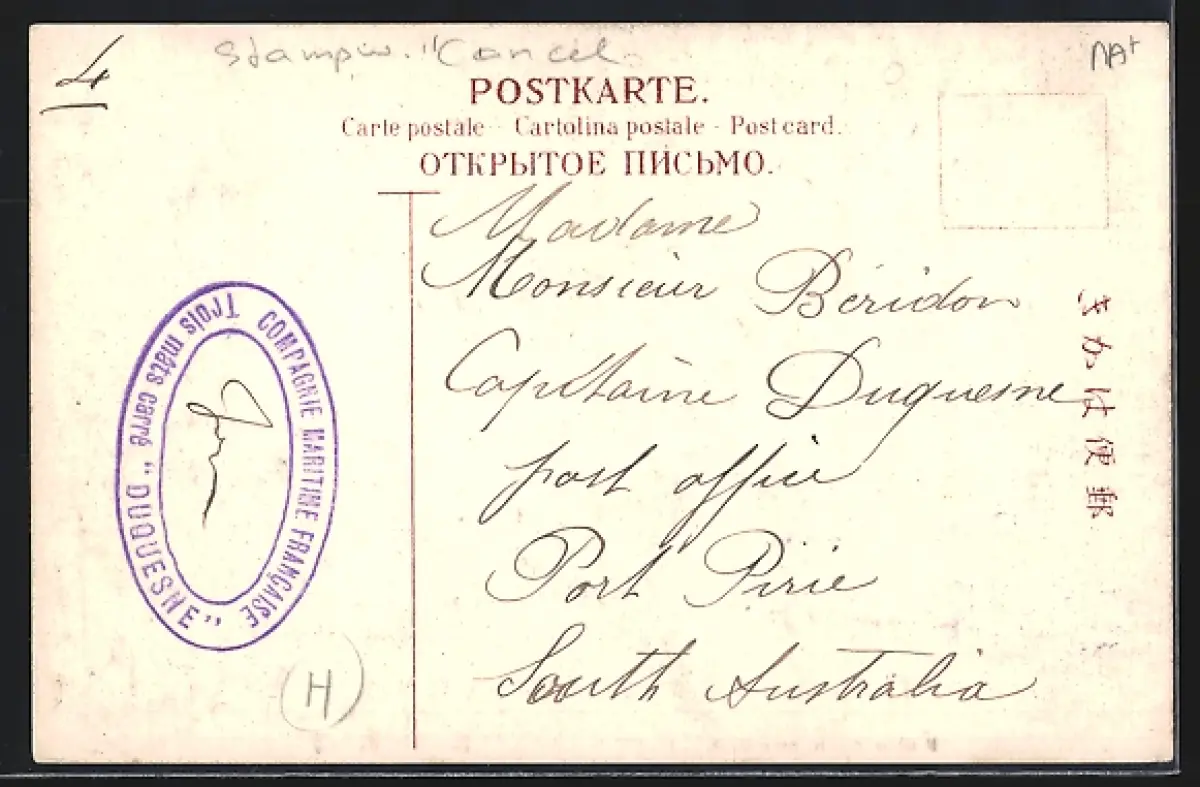 4
Stamp w. "Cancel.
POSTKARTE.
Carte postale - Cartolina postale - Post card.
ОТКРЫТОЕ ПИСЬМО.
Madame
Monsieur Béridon
Capitaine Duquesne
post office
Port Pirie
South Australia
きかは便郵
COMPAGNIE MARITIME FRANÇAISE
Trois mâts carré "DUQUESNE"
H